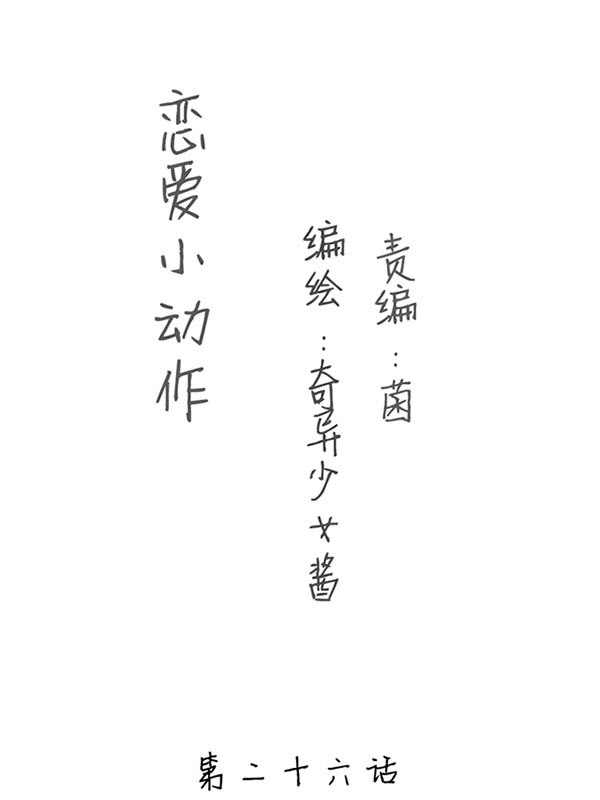 恋爱小动作
编绘：奇异少女酱
责编：菌
第二十六话